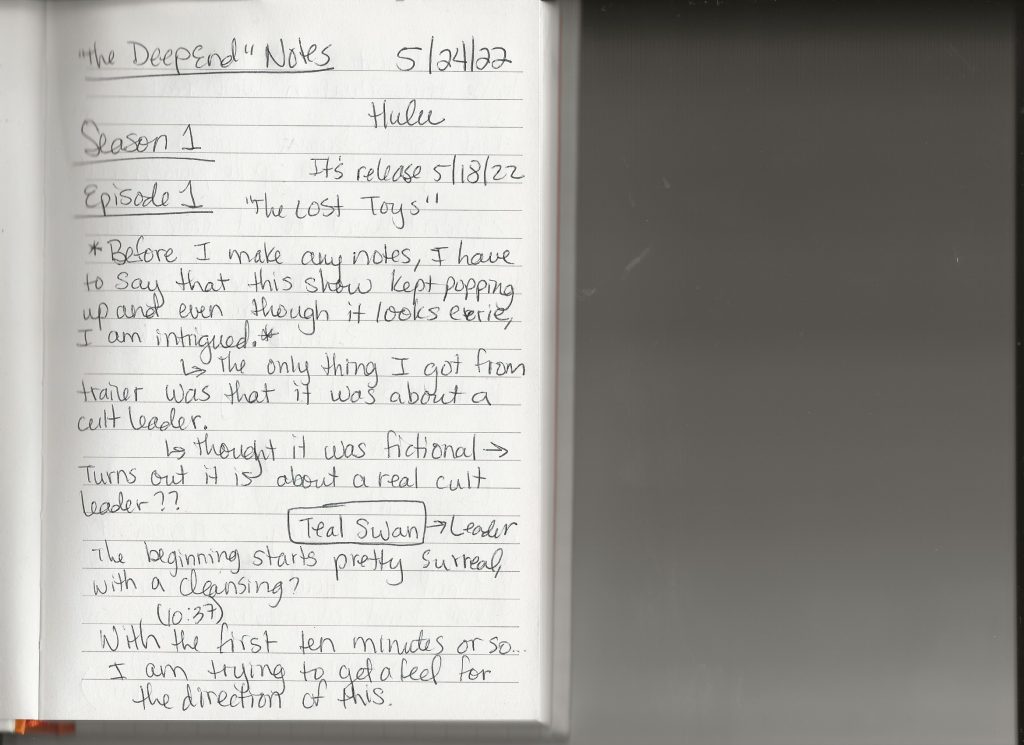 "The DeepEnd" Notes 5/24/22
Hulu
Season 1
It's release 5/18/22
Episode 1 "The Lost Toys"
*Before I make any notes, I have
to say that this show kept popping
up and even though it looks eerie,
I am intrigued.*
↳ The only thing I got from
trailer was that it was about a
cult leader.
↳ thought it was fictional →
Turns out it is about a real cult
leader??
Teal Swan → Leader
The beginning starts pretty surreal,
with a cleansing?
(10:37)
With the first ten minutes or so...
I am trying to get a feel for
the direction of this.